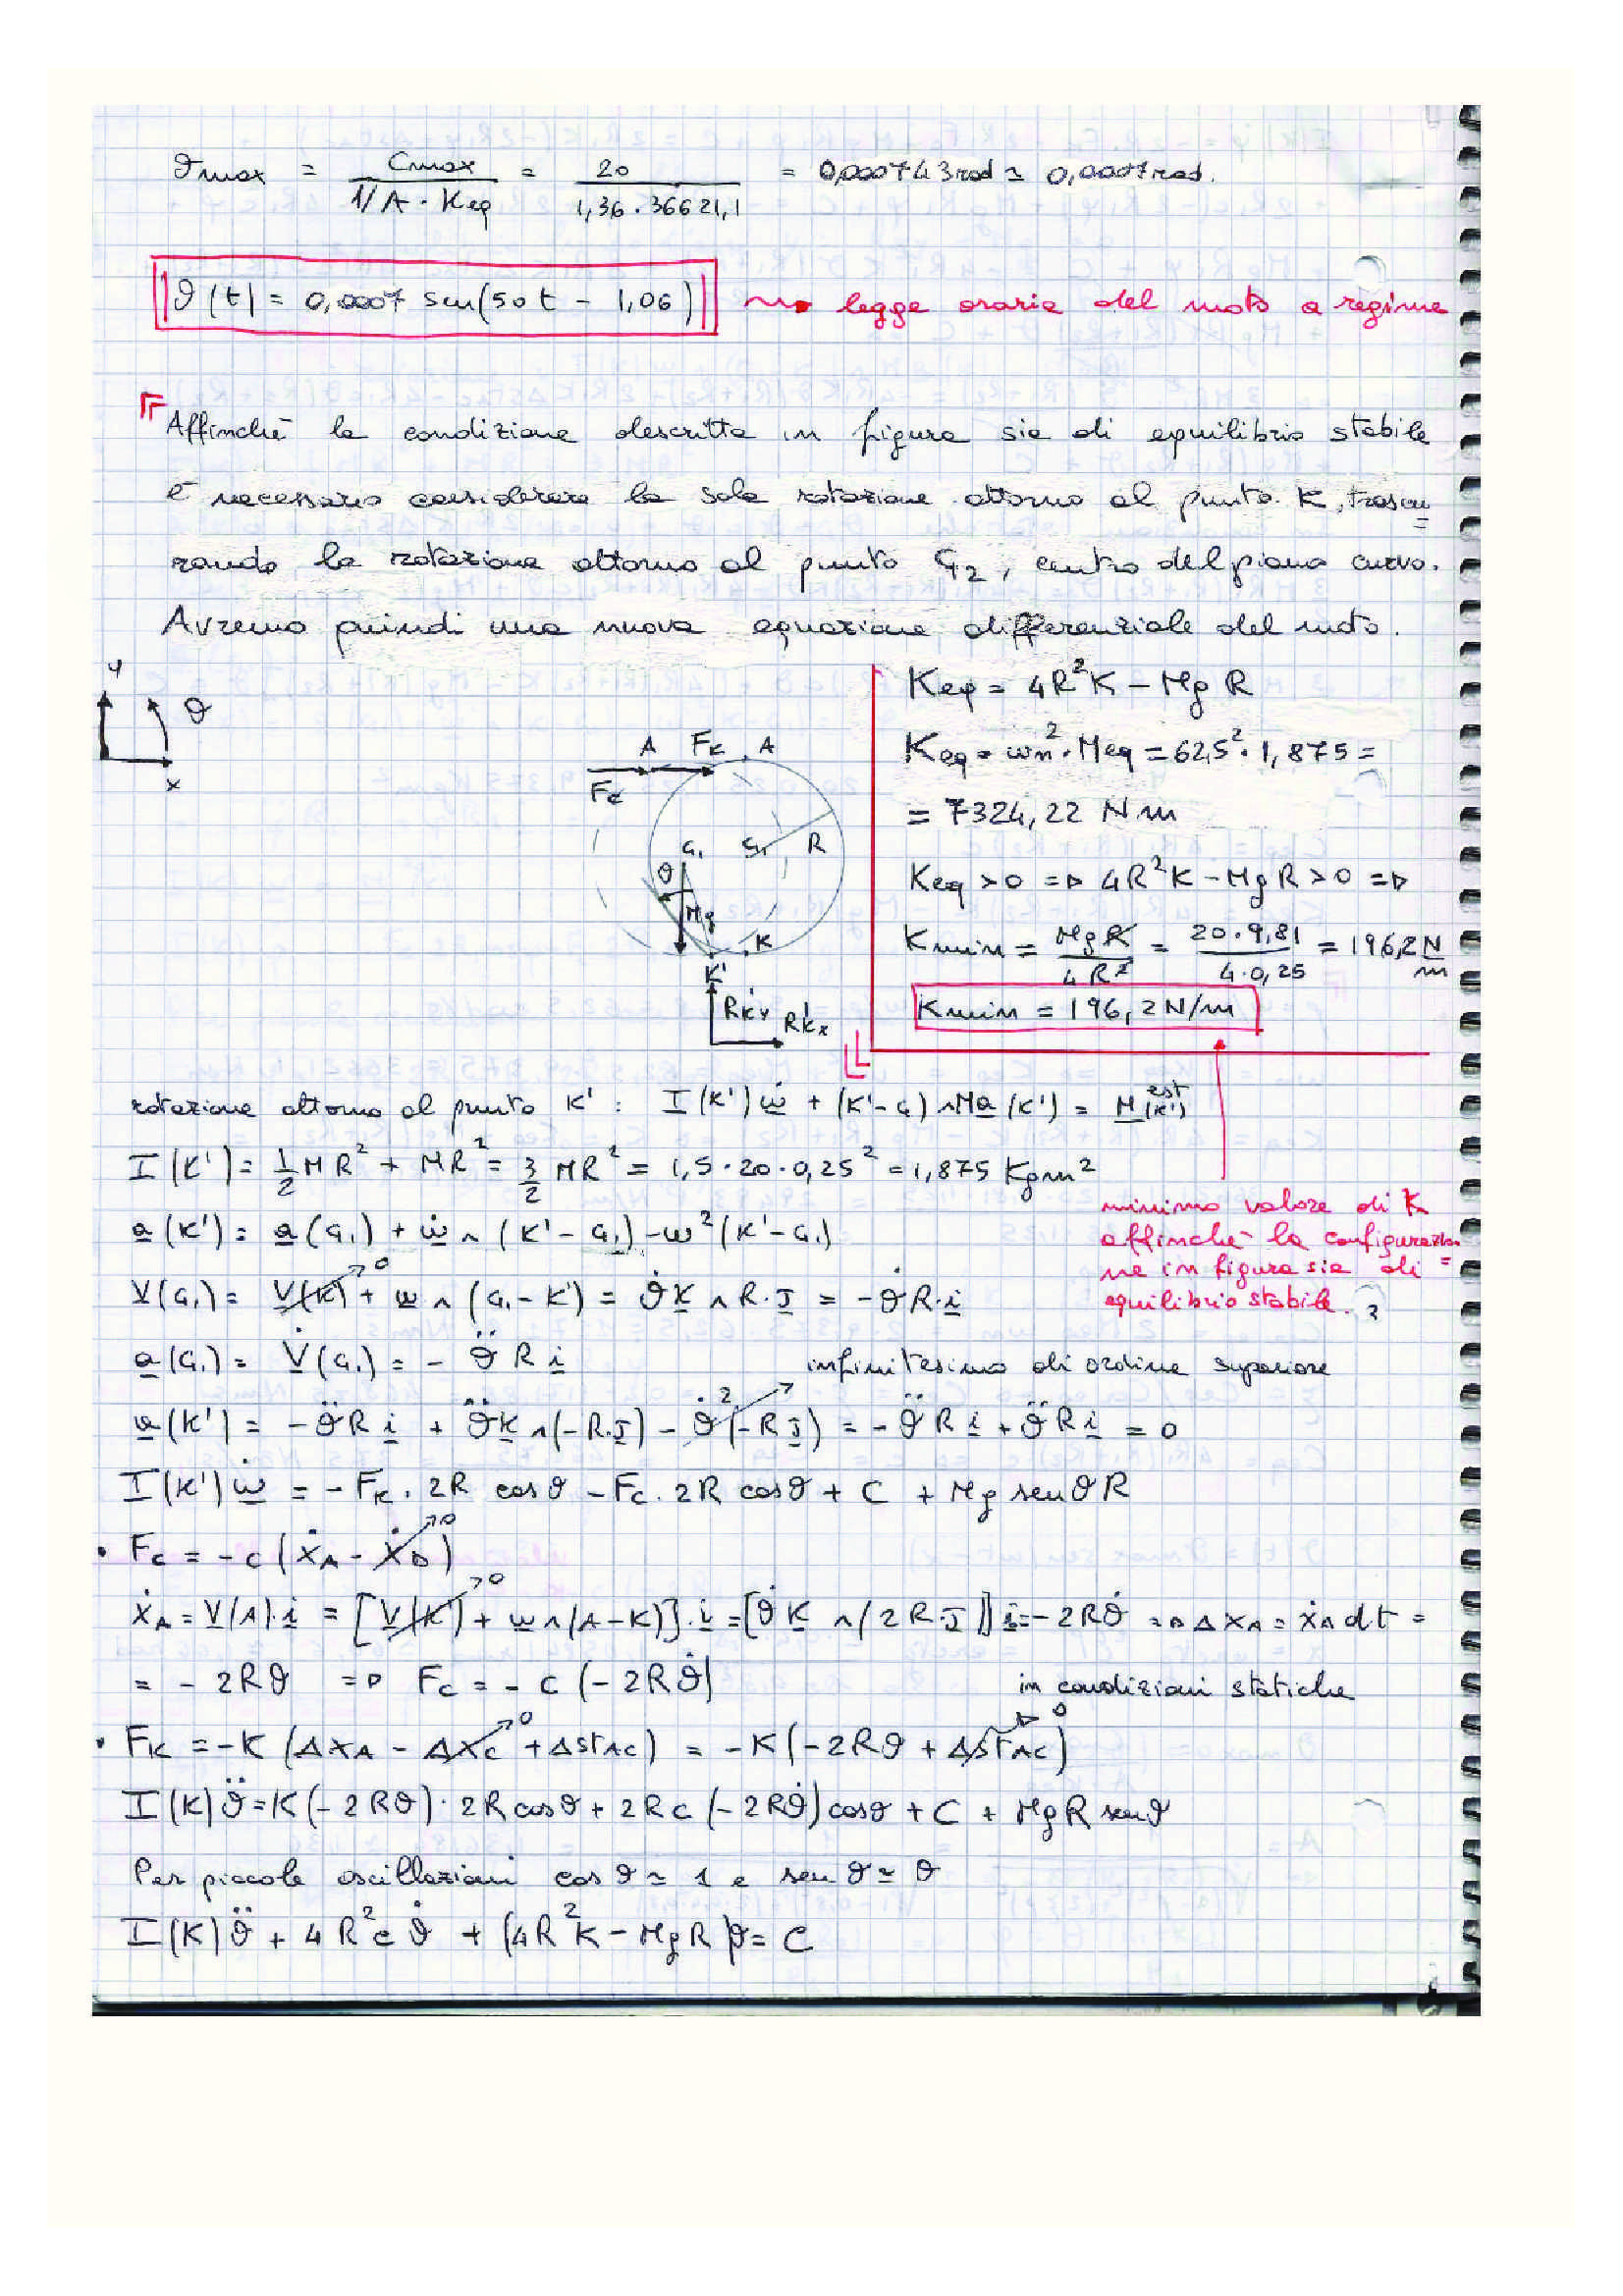 ϑmax = Cmax / (1/A · Keq) = 20 / (1,36 · 36621,1) = 0,000743 rad ≃ 0,0007 rad.
ϑ(t) = 0,0007 sen(50t - 1,06) legge oraria del moto a regime
Affinchè la condizione descritta in figura sia di equilibrio stabile
è necessario considerare la sola rotazione attorno al punto K, trascu=
rando la rotazione attorno al punto G2, centro del piano curvo.
Avremo quindi una nuova equazione differenziale del moto.
y
ϑ
x
A FK A
FC
G1 G1 R
ϑ
Mg
K
K'
RK'y
RK'x
Keq = 4R²K - MgR
Keq = ωn² · Meq = 62,5² · 1,875 =
= 7324,22 Nm
Keq > 0 => 4R²K - MgR > 0 =>
Kmin = MgR / 4R² = 20 · 9,81 / 4 · 0,25 = 196,2 N/m
Kmin = 196,2 N/m
rotazione attorno al punto K' : I(K')ω̇ + (K'-G)∧Ma(K') = M(K')est
I(K') = 1/2 MR² + MR² = 3/2 MR² = 1,5 · 20 · 0,25² = 1,875 Kgm²
minimo valore di K
affinchè la configurazio
ne in figura sia di =
equilibrio stabile.
a(K') = a(G1) + ω̇ ∧ (K' - G1) - ω²(K' - G1)
V(G1) = V(K) + ω ∧ (G1 - K') = ϑ̇K ∧ R·J = -ϑ̇R·i
0
a(G1) = V̇(G1) = - ϑ̈ R i infinitesimo di ordine superiore
a(K') = -ϑ̈R i + ϑ̈K ∧ (-R·J) - ϑ̇²(-R J) = -ϑ̈R i + ϑ̈R i = 0
I(K')ω̇ = - FK · 2R cosϑ - FC · 2R cosϑ + C + Mg senϑ R
• FC = -c (ẋA - ẋD)
0
ẋA = V(A)·i = [V(K') + ω∧(A-K)]·i = [ϑ̇K ∧ (2R·J)] i = -2Rϑ̇ => ΔxA = ẋA dt =
0
= - 2Rϑ => FC = - c (-2Rϑ̇) in condizioni statiche
• FK = -K (ΔXA - ΔXC + ΔstAC) = -K(-2Rϑ + ΔstAC)
0 0
I(K)ϑ̈ = K(-2Rϑ) · 2R cosϑ + 2Rc (-2Rϑ̇)cosϑ + C + MgR senϑ
Per piccole oscillazioni cosϑ ≃ 1 e senϑ ≃ ϑ
I(K)ϑ̈ + 4R²cϑ̇ + (4R²K - MgR)ϑ = C